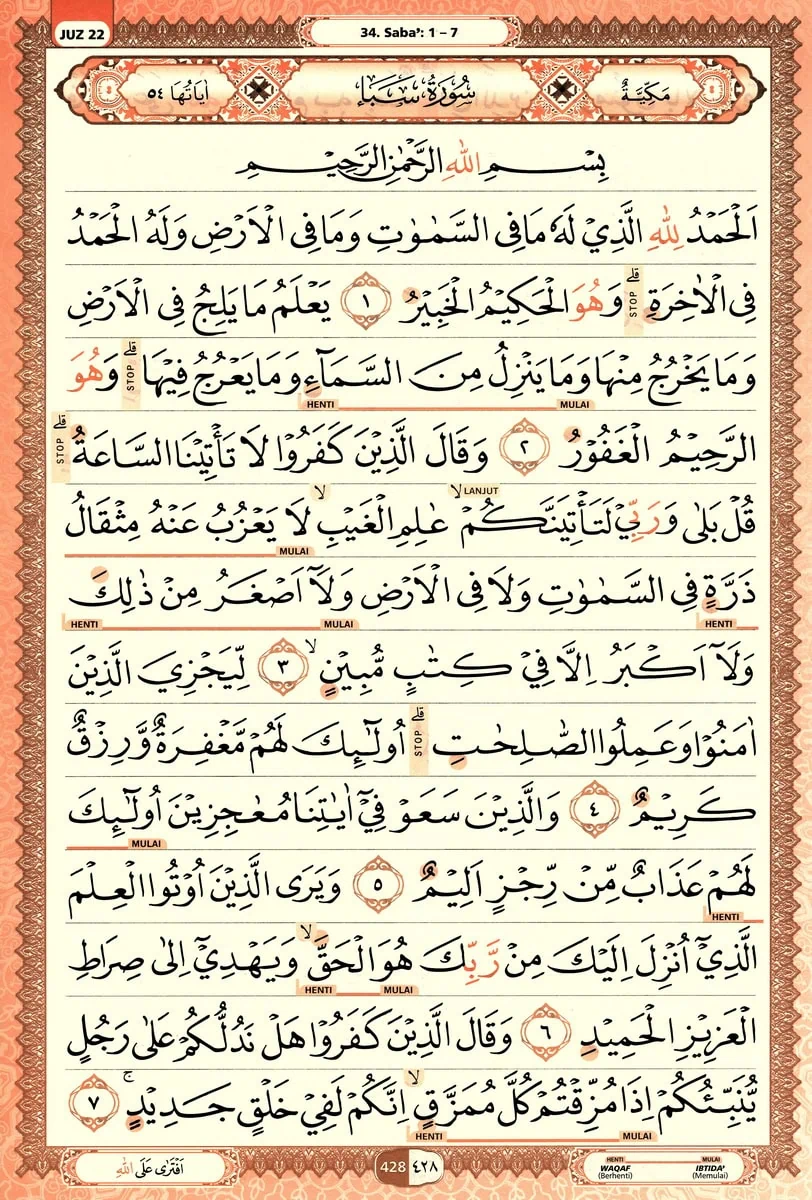 JUZ 22
34. Saba’: 1 – 7
مَكِّيَّةٌ سُوْرَةُ سَبَأٍ اٰيَاتُهَا ٥٤
بِسْـــمِ اللّٰهِ الرَّحْمٰنِ الرَّحِيْـــمِ
اَلْحَمْدُ لِلّٰهِ الَّذِيْ لَهٗ مَا فِى السَّمٰوٰتِ وَمَا فِى الْاَرْضِ وَلَهُ الْحَمْدُ
فِى الْاٰخِرَةِ ۗ STOP وَهُوَ الْحَكِيْمُ الْخَبِيْرُ ١ يَعْلَمُ مَا يَلِجُ فِى الْاَرْضِ
وَمَا يَخْرُجُ مِنْهَا وَمَا يَنْزِلُ مِنَ السَّمَاۤءِ وَمَا يَعْرُجُ فِيْهَا ۗ STOP وَهُوَ
MULAI HENTI
الرَّحِيْمُ الْغَفُوْرُ ٢ وَقَالَ الَّذِيْنَ كَفَرُوْا لَا تَأْتِيْنَا السَّاعَةُ ۗ STOP
قُلْ بَلٰى وَرَبِّيْ لَتَأْتِيَنَّكُمْ ۙ LANJUT عٰلِمِ الْغَيْبِ ۙ لَا يَعْزُبُ عَنْهُ مِثْقَالُ
MULAI
ذَرَّةٍ فِى السَّمٰوٰتِ وَلَا فِى الْاَرْضِ وَلَآ اَصْغَرُ مِنْ ذٰلِكَ
HENTI MULAI HENTI
وَلَآ اَكْبَرُ اِلَّا فِيْ كِتٰبٍ مُّبِيْنٍ ۙ ٣ لِّيَجْزِيَ الَّذِيْنَ
اٰمَنُوْا وَعَمِلُوا الصّٰلِحٰتِ ۗ STOP اُولٰۤىِٕكَ لَهُمْ مَّغْفِرَةٌ وَّرِزْقٌ
كَرِيْمٌ ٤ وَالَّذِيْنَ سَعَوْ فِيْٓ اٰيٰتِنَا مُعٰجِزِيْنَ اُولٰۤىِٕكَ
MULAI
لَهُمْ عَذَابٌ مِّنْ رِّجْزٍ اَلِيْمٌ ٥ وَيَرَى الَّذِيْنَ اُوْتُوا الْعِلْمَ
HENTI
الَّذِيْٓ اُنْزِلَ اِلَيْكَ مِنْ رَّبِّكَ هُوَ الْحَقَّ ۙ وَيَهْدِيْٓ اِلٰى صِرَاطِ
MULAI HENTI
الْعَزِيْزِ الْحَمِيْدِ ٦ وَقَالَ الَّذِيْنَ كَفَرُوْا هَلْ نَدُلُّكُمْ عَلٰى رَجُلٍ
يُّنَبِّئُكُمْ اِذَا مُزِّقْتُمْ كُلَّ مُمَزَّقٍ ۙ اِنَّكُمْ لَفِيْ خَلْقٍ جَدِيْدٍ ۚ ٧
MULAI HENTI
اَفْتَرٰى عَلَى اللّٰهِ
428 ٤٢٨
HENTI MULAI
WAQAF IBTIDA’
(Berhenti) (Memulai)